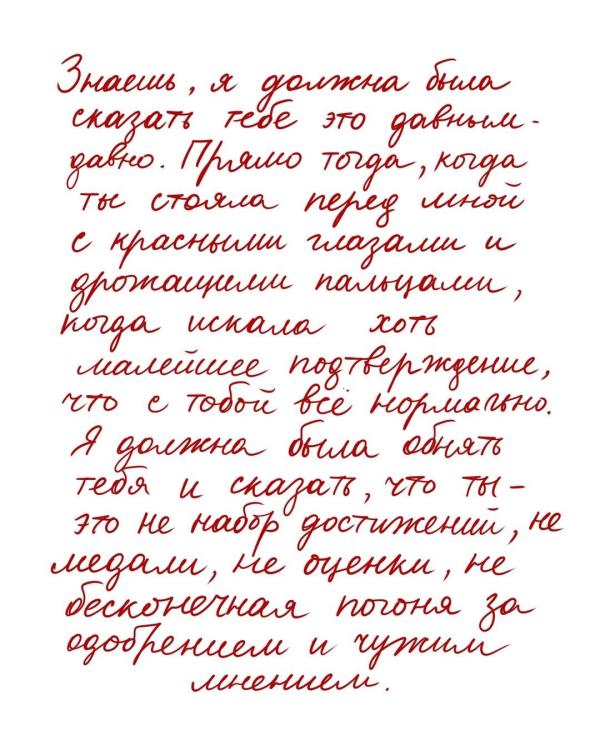 Знаешь, я должна была
сказать тебе это давным-
давно. Прямо тогда, когда
ты стояла перед мной
с красными глазами и
дрожащими пальцами,
когда искала хоть
малейшее подтверждение,
что с тобой всё нормально.
Я должна была обнять
тебя и сказать, что ты –
это не набор достижений, не
медали, не оценки, не
бесконечная погоня за
одобрением и чужим
мнением.